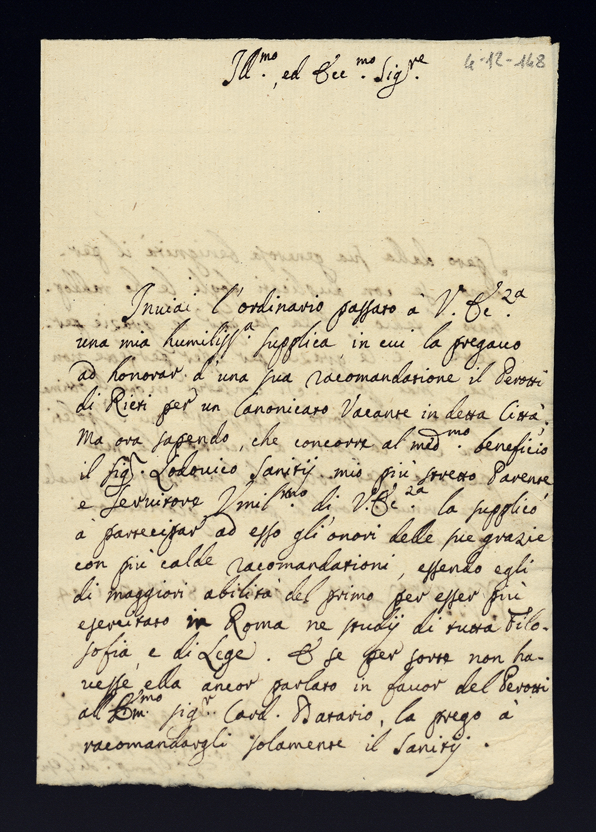 4-12-148
Ill.mo, ed Ecc.mo Sig.re
Inviai l'ordinario passato à V. Ec.za
una mia humiliss.a supplica, in cui la pregauo
ad honorar d'una sua racomandatione il Perotti
di Rieti per un Canonicato Vacante in detta Città.
Ma ora sapendo, che concorre al med.mo beneficio
il sig.r Lodovico Sanitij mio più stretto Parente,
e Servitore Vmil.mo di V. Ec.za la supplico
à partecipar ad esso gl'onori delle sue grazie
con più calde racomandationi, essendo egli
di maggiori abilità del primo per esser più
esercitato in Roma ne studij di tutta Filo-
sofia, e di Lege. E se per sorte non ha-
vesse, ella ancor parlato in favor del Perotti
all'Em.mo sig.r Card. Datario, la prego à
racomandargli solamente il Sanitij.